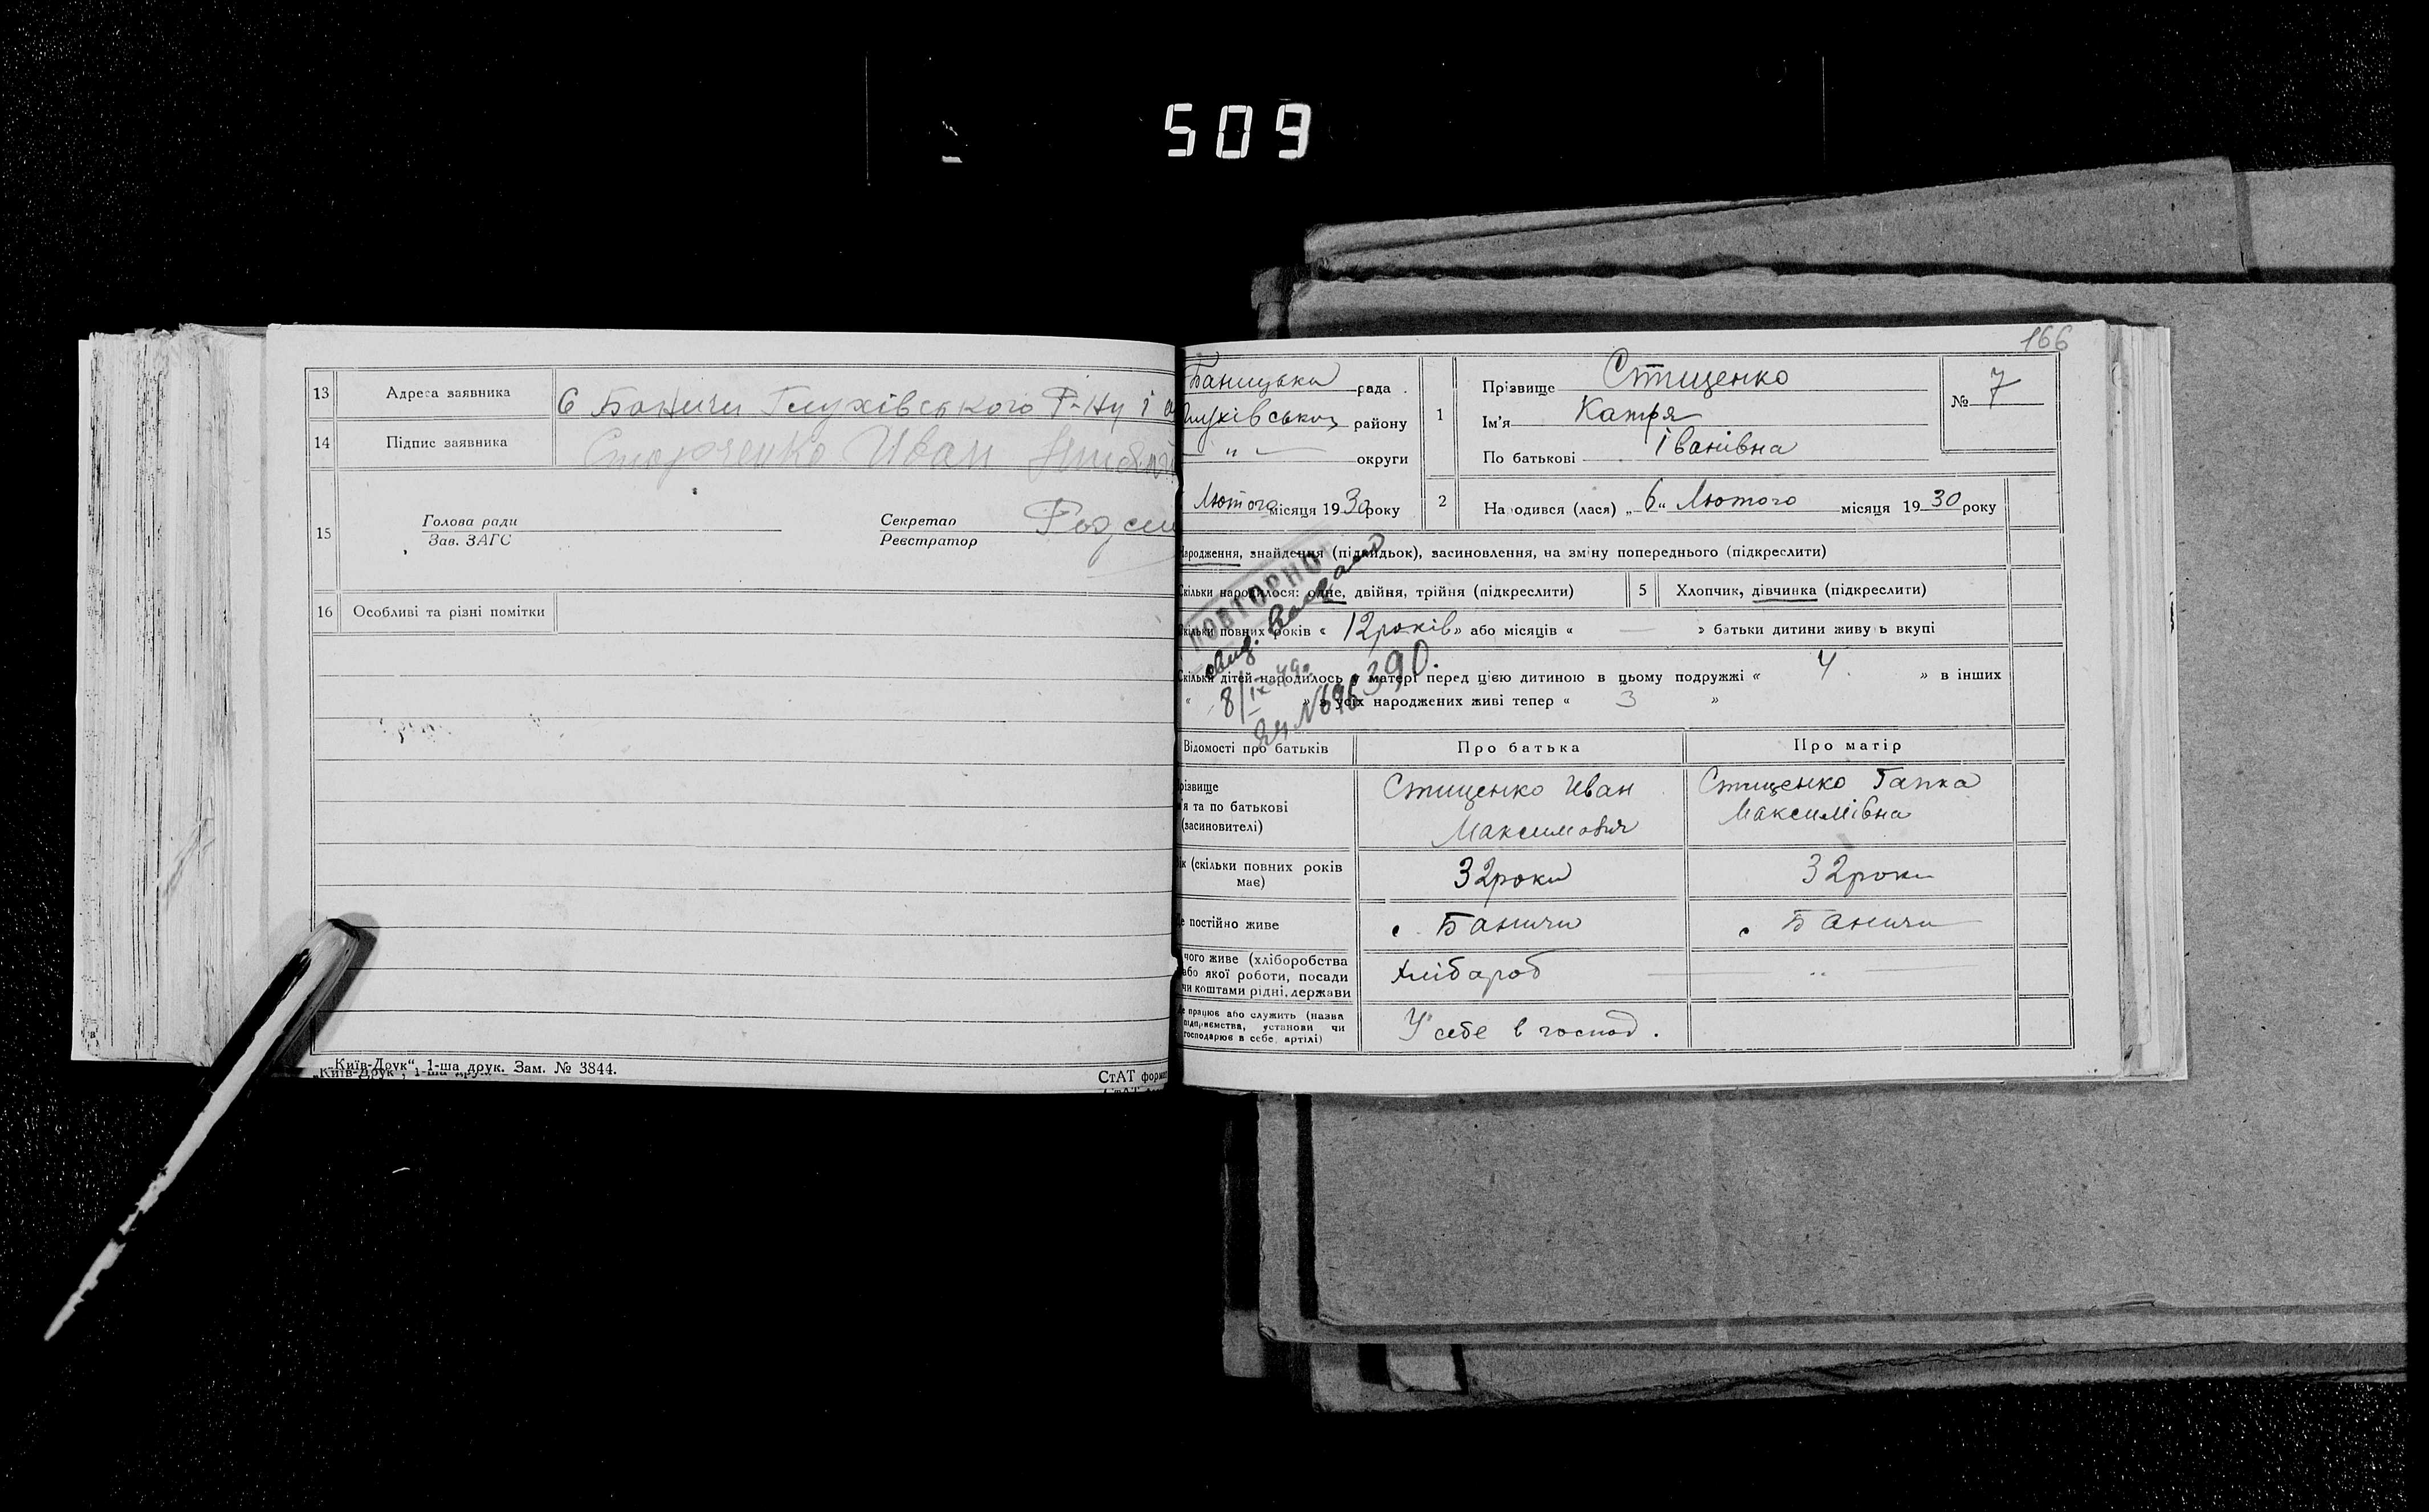 509
13 Адреса заявника С Баничи Глухівського Р-ну і о
14 Підпис заявника Сторченко Иван
15 Голова ради
Зав. ЗАГС
Секретар
Реєстратор
16 Особливі та різні помітки
„Київ-Друк“, 1-ша друк. Зам. № 3844.
СтАТ форма
166
Баницька рада
Глухівського району
„ округи
Лютого місяця 1930 року
1 Прізвище Стищенко
Ім'я Катря
По батькові Іванівна
№ 7
2 Народився (лася) „6“ Лютого місяця 1930 року
народження, знайдення (підкидьок), засиновлення, на зміну попереднього (підкреслити)
Скільки народилося: одне, двійня, трійня (підкреслити)
5 Хлопчик, дівчинка (підкреслити)
Скільки повних років « 12 років » або місяців « — » батьки дитини живуть вкупі
Скільки дітей народилось у матері перед цією дитиною в цьому подружжі « 4 » в інших
« » з усіх народжених живі тепер « 3 »
ПОВТОРНО
8/IX-49
№ 696390.
Відомості про батьків
Про батька
Про матір
Прізвище
ім'я та по батькові
(засиновителі)
Стищенко Иван
Максимович
Стищенко Гапка
Максимівна
Вік (скільки повних років
має)
32 роки
32 роки
Де постійно живе
с. Баничи
с Баничи
чого живе (хліборобства
або якої роботи, посади
чи коштами рідні, держави
Хлібороб
— „ —
Де працює або служить (назва
підприємства, установи чи
господарює в себе, артілі)
У себе в господ.